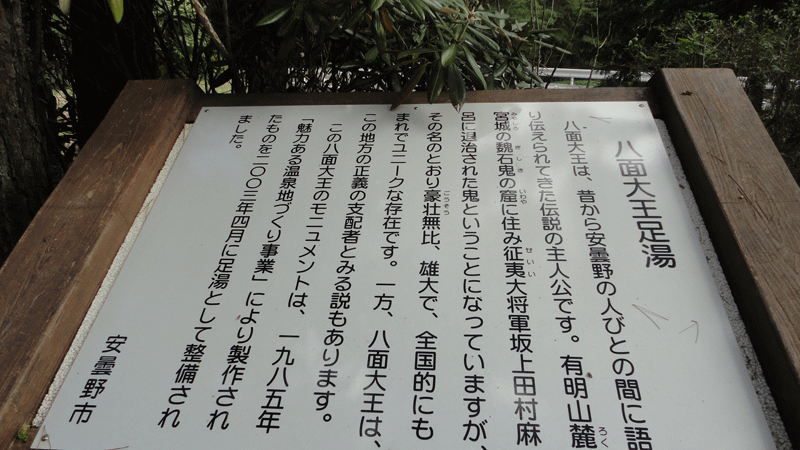 八面大王足湯
八面大王は、昔から安曇野の人びとの間に語
り伝えられてきた伝説の主人公です。有明山麓
宮城の魏石鬼の窟に住み征夷大将軍坂上田村麻
呂に退治された鬼ということになっていますが、
その名のとおり豪壮無比、雄大で、全国的にも
まれでユニークな存在です。一方、八面大王は、
この地方の正義の支配者とみる説もあります。
この八面大王のモニュメントは、一九八五年
「魅力ある温泉地づくり事業」により製作され
たものを二〇〇三年四月に足湯として整備され
ました。
安曇野市